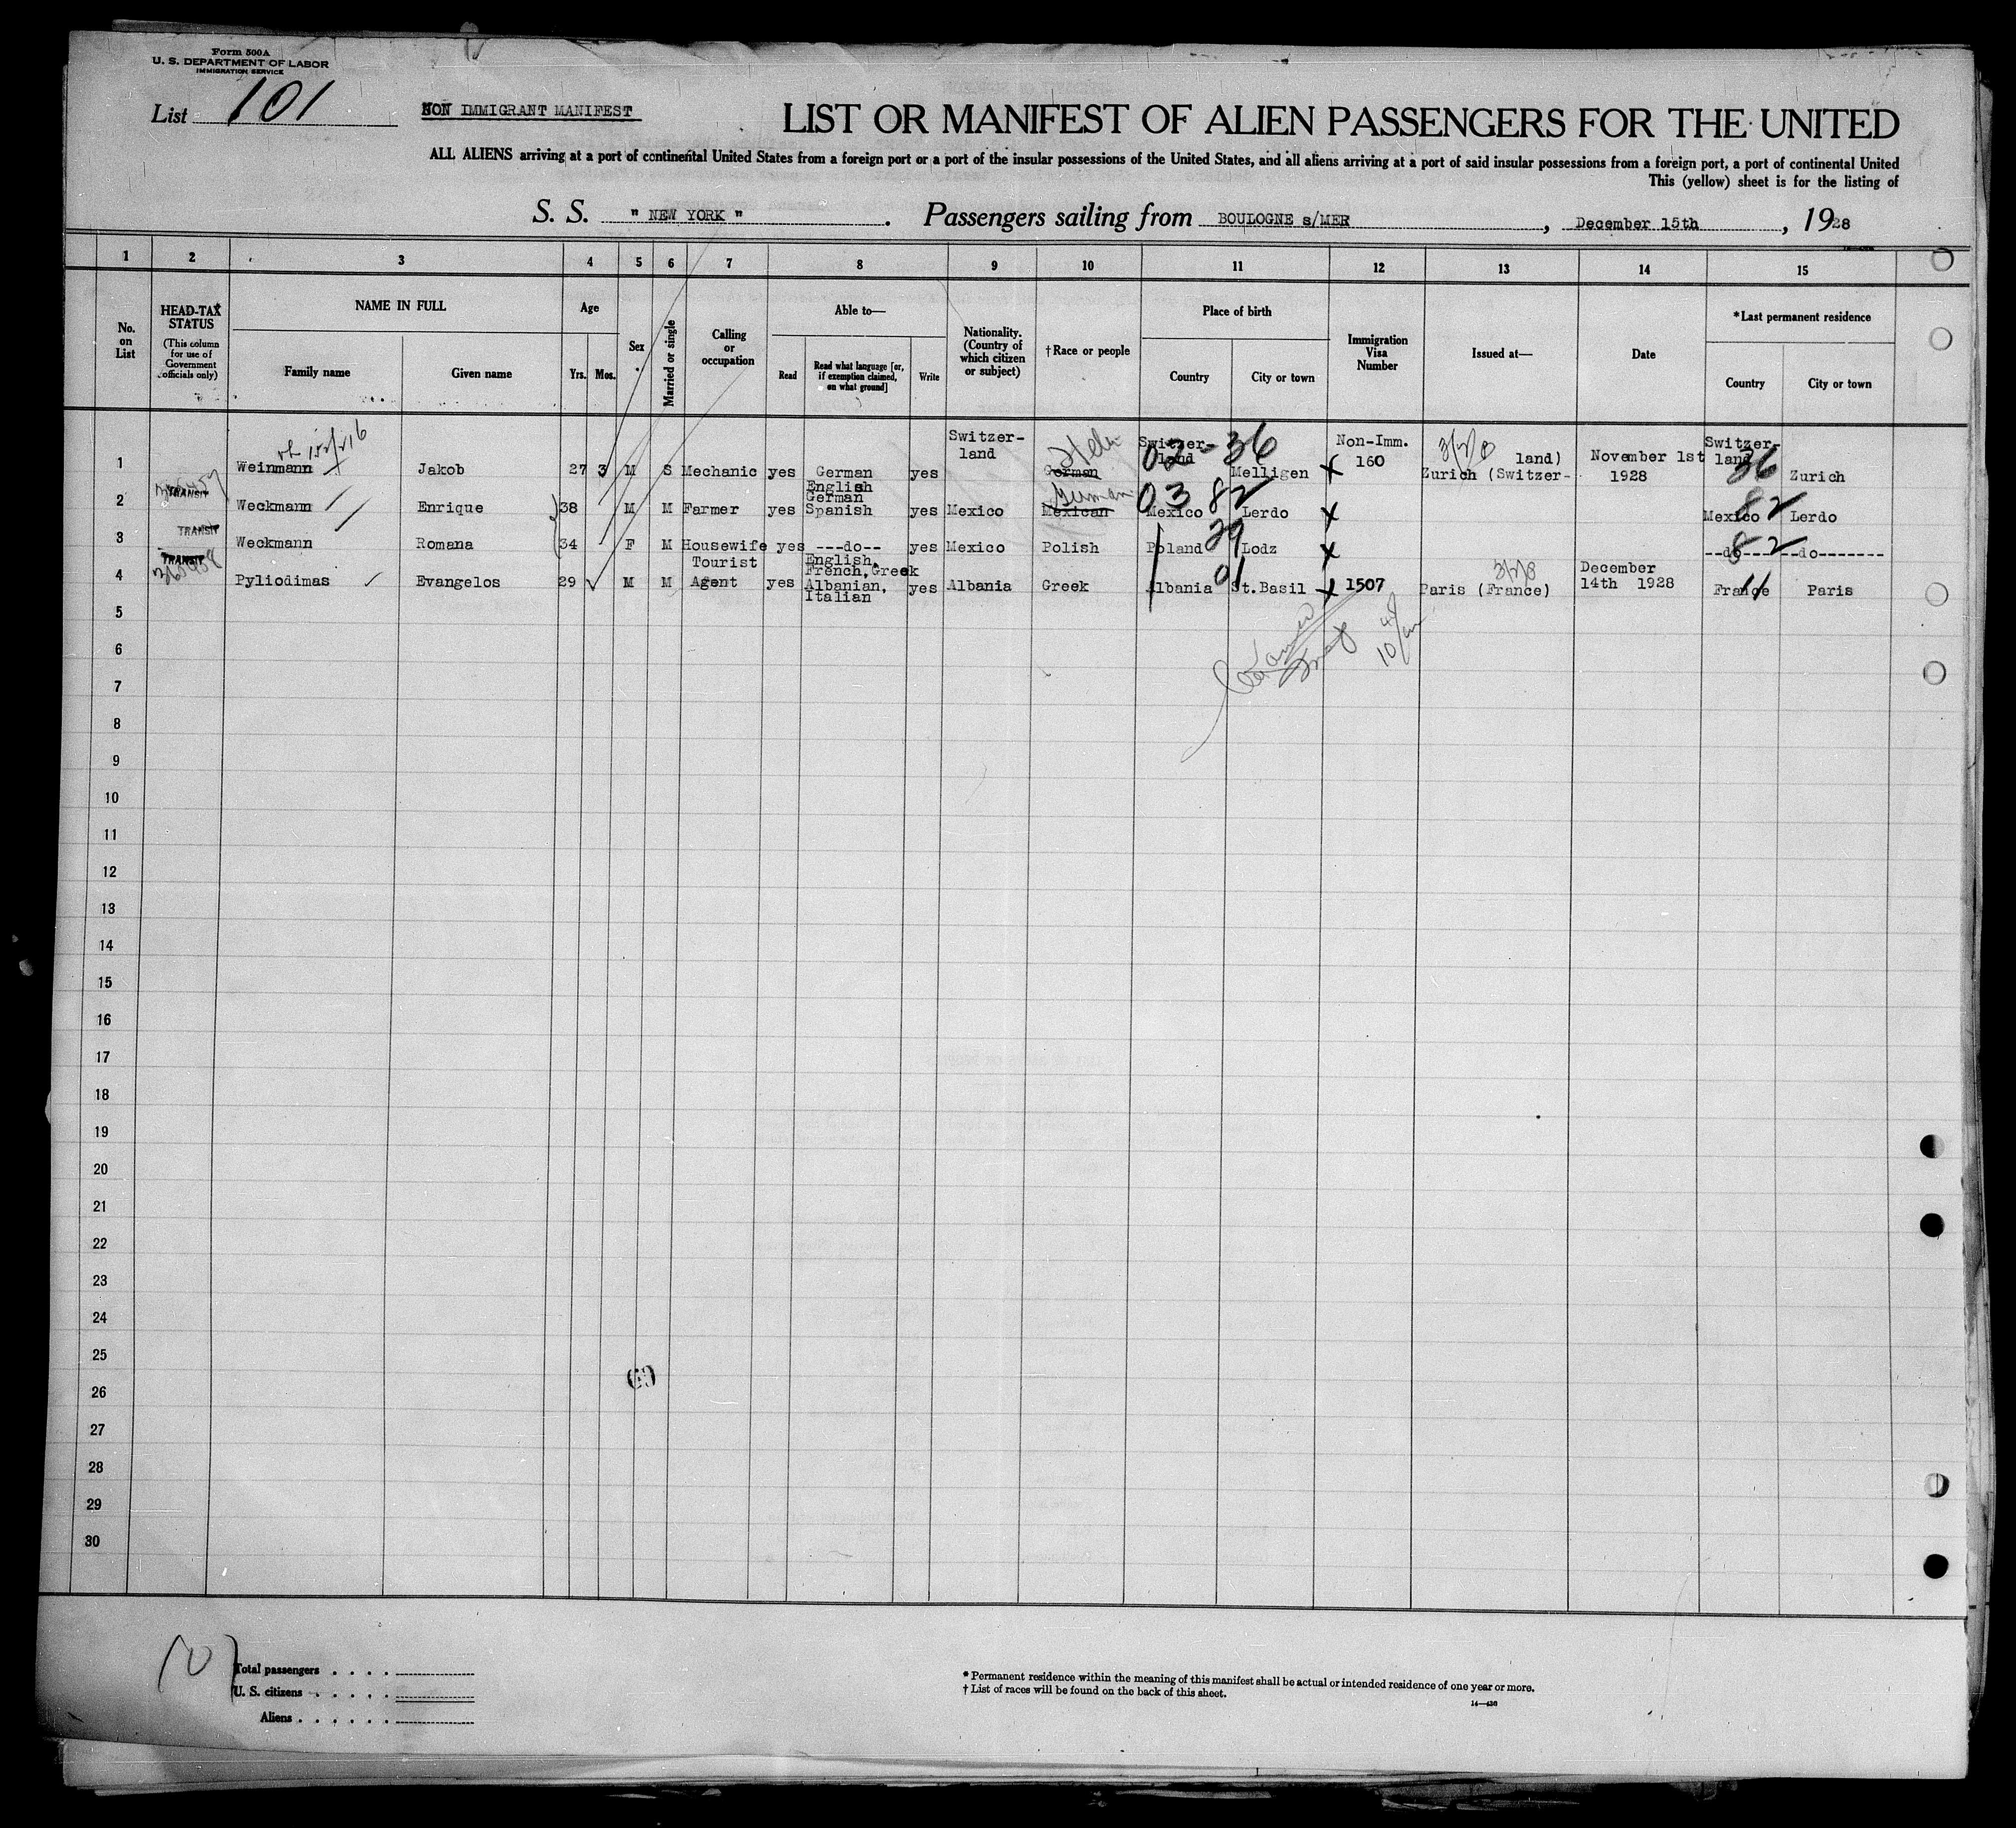 Form 500A
U. S. DEPARTMENT OF LABOR
IMMIGRATION SERVICE
List 101
NON IMMIGRANT MANIFEST
LIST OR MANIFEST OF ALIEN PASSENGERS FOR THE UNITED
ALL ALIENS arriving at a port of continental United States from a foreign port or a port of the insular possessions of the United States, and all aliens arriving at a port of said insular possessions from a foreign port, a port of continental United
This (yellow) sheet is for the listing of
S. S. " NEW YORK " . Passengers sailing from BOULOGNE s/MER , December 15th , 1928
1 2 3 4 5 6 7 8 9 10 11 12 13 14 15
No. on List
HEAD-TAX STATUS
(This column for use of Government officials only)
NAME IN FULL
Family name
Given name
Age
Yrs. Mos.
Sex
Married or single
Calling or occupation
Able to—
Read
Read what language [or, if exemption claimed, on what ground]
Write
Nationality. (Country of which citizen or subject)
†Race or people
Place of birth
Country
City or town
Immigration Visa Number
Issued at—
Date
*Last permanent residence
Country
City or town
1 Weinmann Jakob 27 3 M S Mechanic yes German yes Switzer-land German Switzer-land 02-36 Melligen Non-Imm. 160 Zurich (Switzer-land) November 1st 1928 Switzer-land 36 Zurich
2 TRANSIT Weckmann Enrique 38 M M Farmer yes English German Spanish yes Mexico Mexican German Mexico 03 82 Lerdo Mexico 82 Lerdo
3 TRANSIT Weckmann Romana 34 F M Housewife yes ---do-- yes Mexico Polish Poland 29 Lodz --do-- 82 --do-------
4 TRANSIT Pyliodimas Evangelos 29 M M Tourist Agent yes English, French, Greek Albanian, Italian yes Albania Greek Albania 01 St.Basil 1507 Paris (France) December 14th 1928 France 11 Paris
5
6
7
8
9
10
11
12
13
14
15
16
17
18
19
20
21
22
23
24
25
26
27
28
29
30
Total passengers . . . .
U. S. citizens . . . . .
Aliens . . . . . .
* Permanent residence within the meaning of this manifest shall be actual or intended residence of one year or more.
† List of races will be found on the back of this sheet.